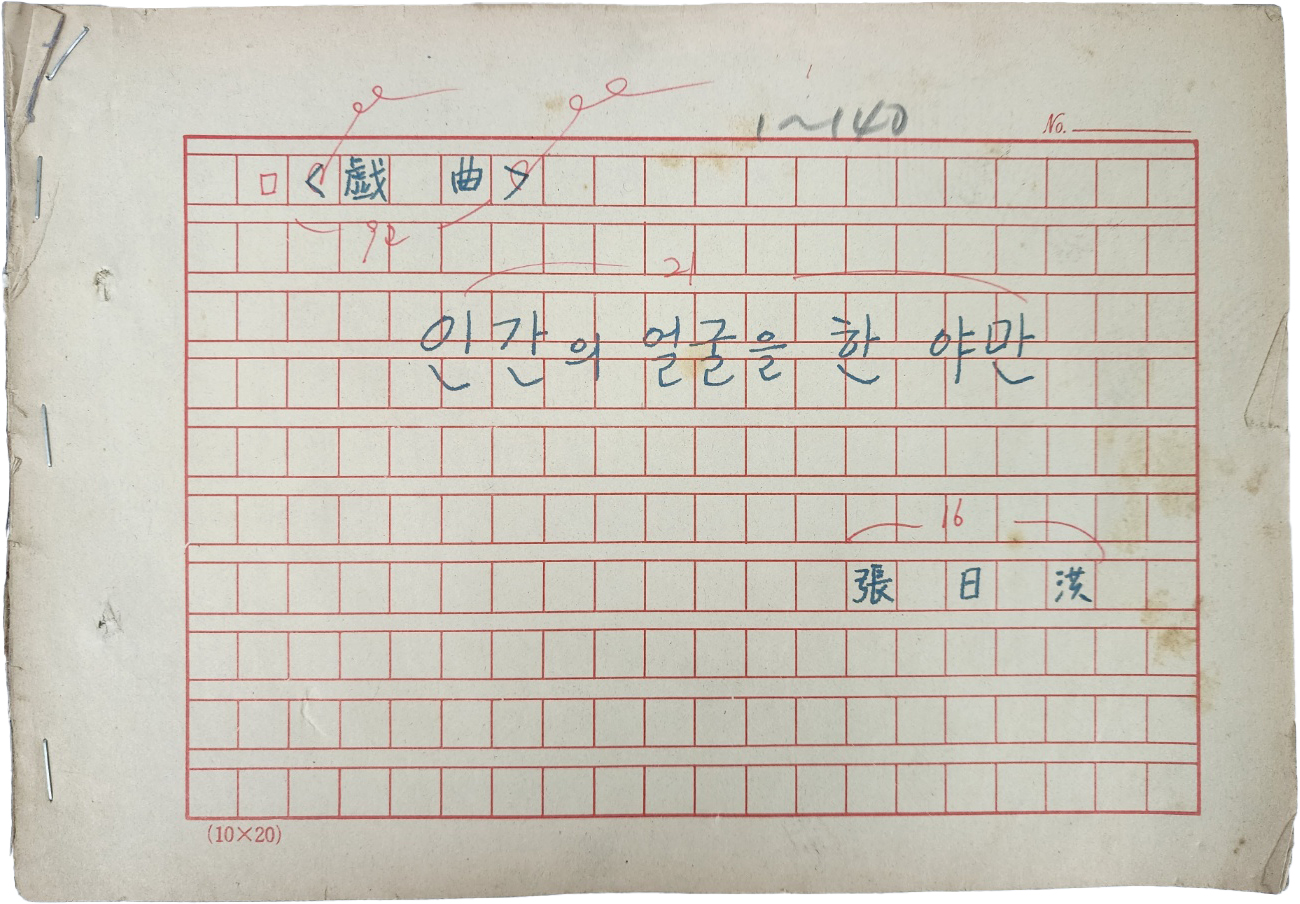 1~140
No.
□ <戱 曲>
21
인간의 얼굴을 한 야만
16
張 日 洪
(10×20)